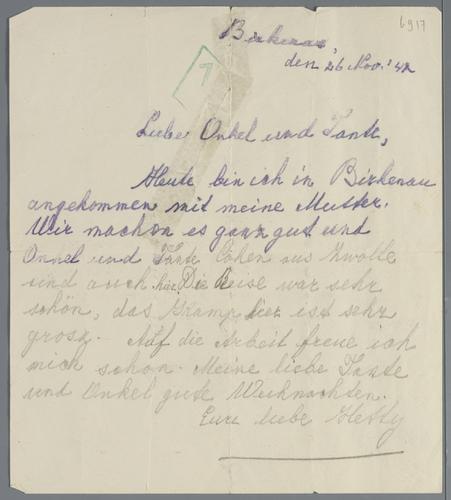 6917
Birkenau,
den 26 Nov. '42
7
Liebe Onkel und Tante,
Heute bin ich in Birkenau
angekommen mit meine Mutter.
Wir machon es ganz gut und
Onkel und Tante Cohen aus Zwolle
sind auch hier. Die Reise war sehr
schön, das hier ist sehr
grosz. Auf die Arbeit freue ich
mich schon. Meine liebe Tante
und Onkel gute Weihnachten.
Eure liebe Hetty